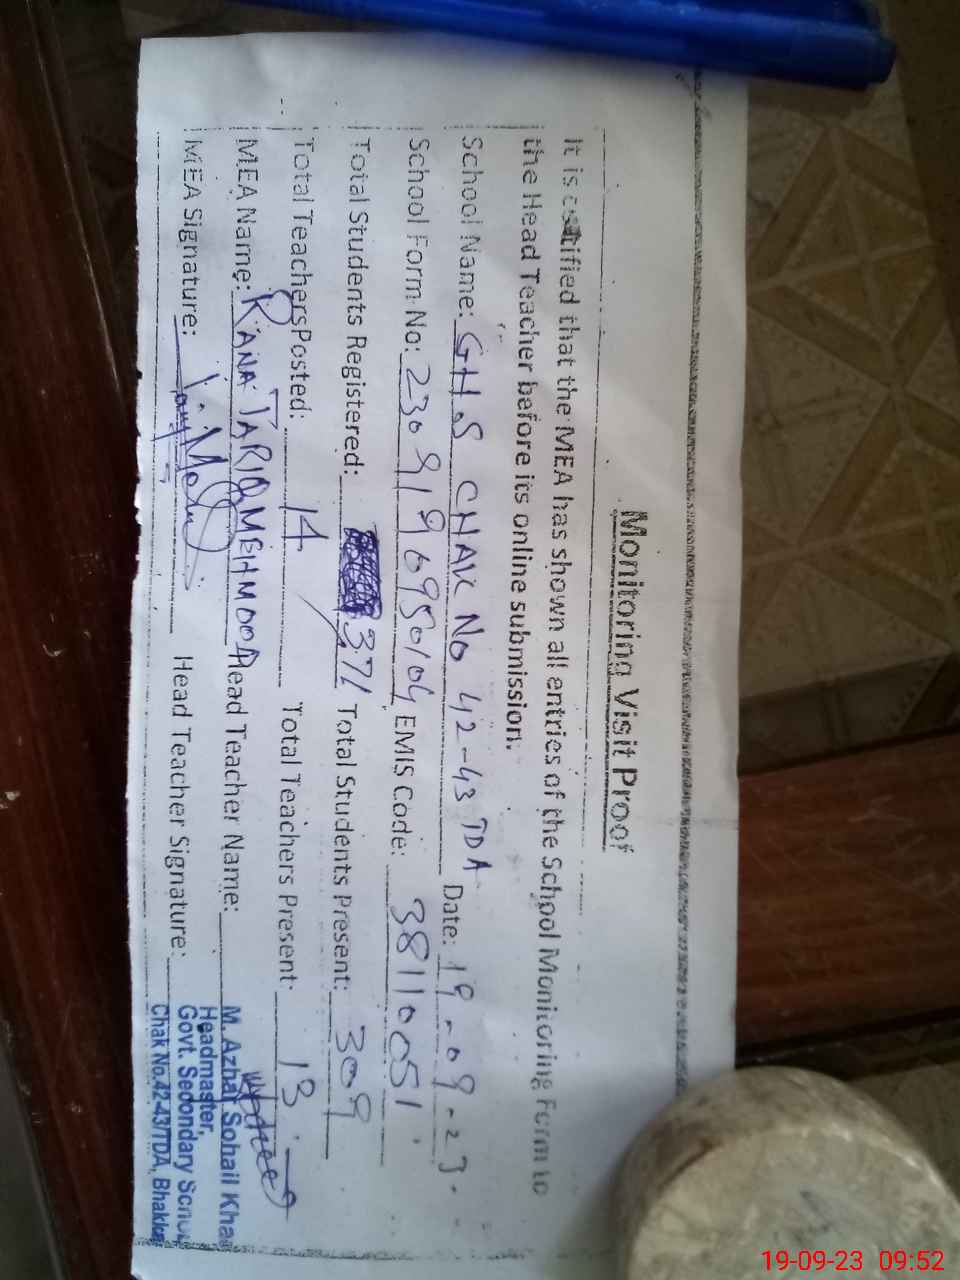 Monitoring Visit Proof
It is certified that the MEA has shown all entries of the School Monitoring Form to
the Head Teacher before its online submission.
School Name: GHS CHAK No 42-43 TDA Date: 19-09-23
School Form No: 230919 EMIS Code: 38110051
Total Students Registered: 371 Total Students Present: 309
Total Teachers Posted: 14 Total Teachers Present: 13
MEA Name: RANA TARIQ MEHMOOD Head Teacher Name:
MEA Signature: Head Teacher Signature:
M. Azhar Sohail Kha
Headmaster,
Govt. Secondary School
Chak No.42-43/TDA, Bhakkar
19-09-23 09:52